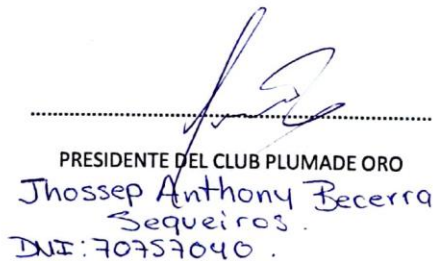 PRESIDENTE DEL CLUB PLUMADE ORO
Jhossep Anthony Becerra
Sequeiros.
DNI: 70757040.